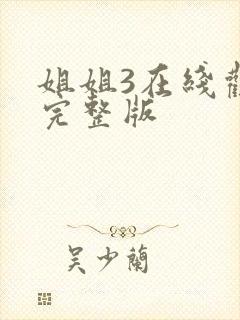 姐姐3在綫觀
完整版
吴少蘭